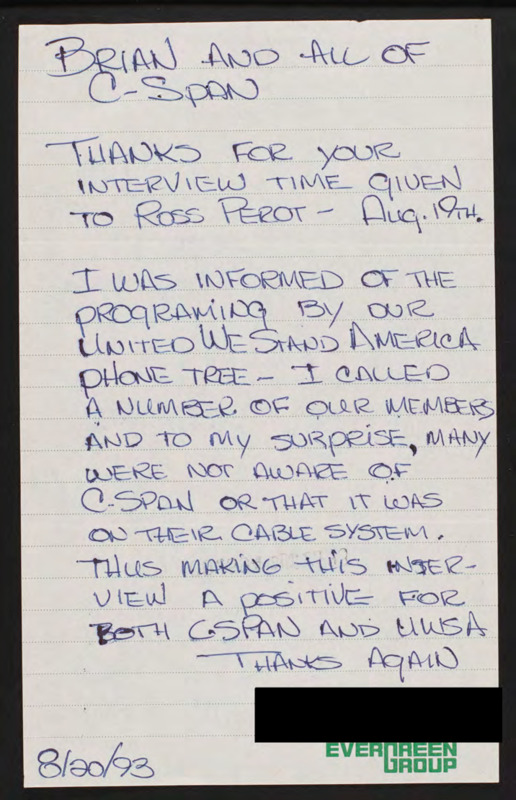 BRIAN AND ALL OF
C-SPAN
THANKS FOR YOUR
INTERVIEW TIME GIVEN
TO ROSS PEROT - AUG. 19TH.
I WAS INFORMED OF THE
PROGRAMING BY OUR
UNITED WE STAND AMERICA
PHONE TREE - I CALLED
A NUMBER OF OUR MEMBERS
AND TO MY SURPRISE, MANY
WERE NOT AWARE OF
C-SPAN OR THAT IT WAS
ON THEIR CABLE SYSTEM.
THUS MAKING THIS INTER-
VIEW A POSITIVE FOR
BOTH CSPAN AND UWSA
THANKS AGAIN
EVERGREEN
GROUP
8/20/93